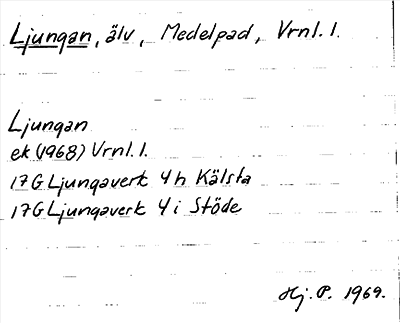 Ljungan, älv, Medelpad, Vrnl. 1.
Ljungan
ek (1968) Vrnl. 1.
17G Ljungaverk 4h Kälsta
17G Ljungaverk 4i Stöde
Hj. P. 1969.